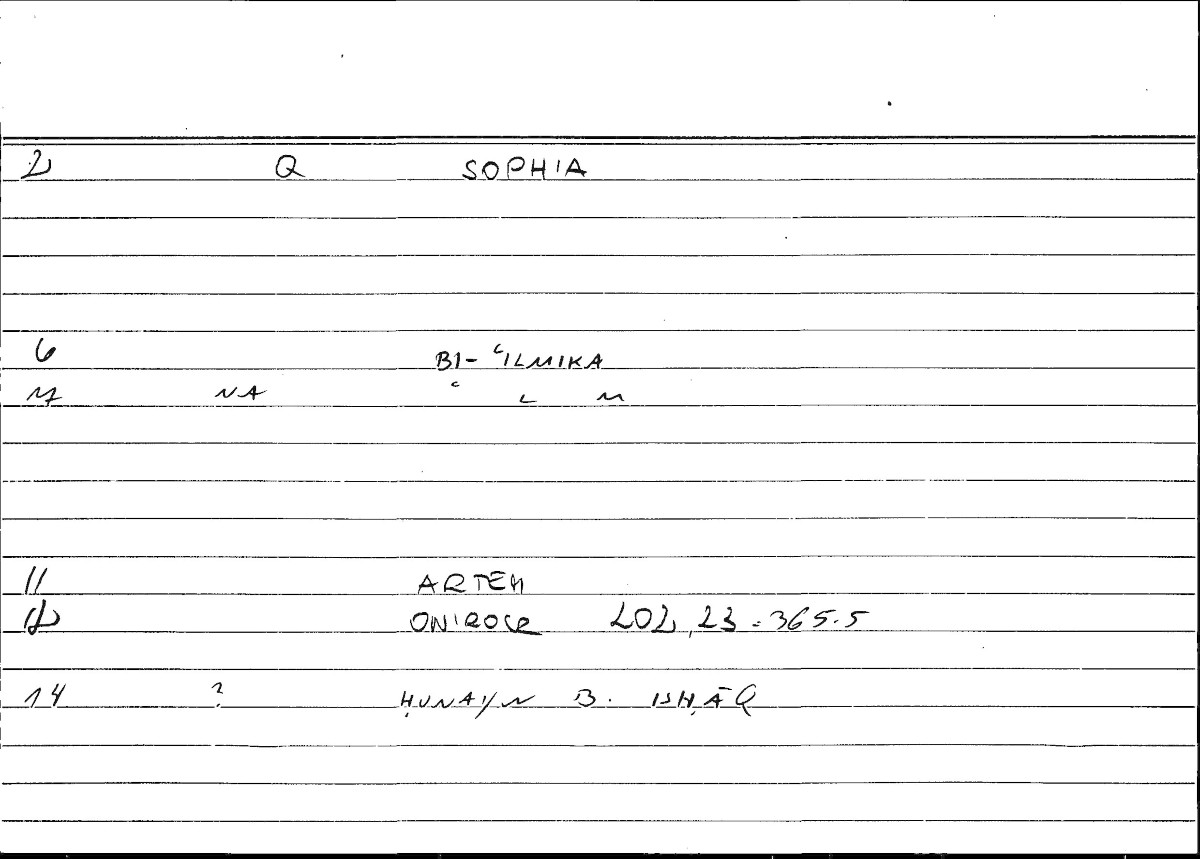 2 Q SOPHIA
6 BI- ʿILMIKA
NA ʿ L M
11 ARTEM
12 ONIROCR 202,23 = 365.5
14 ? ḤUNAYN B. ISḤĀQ